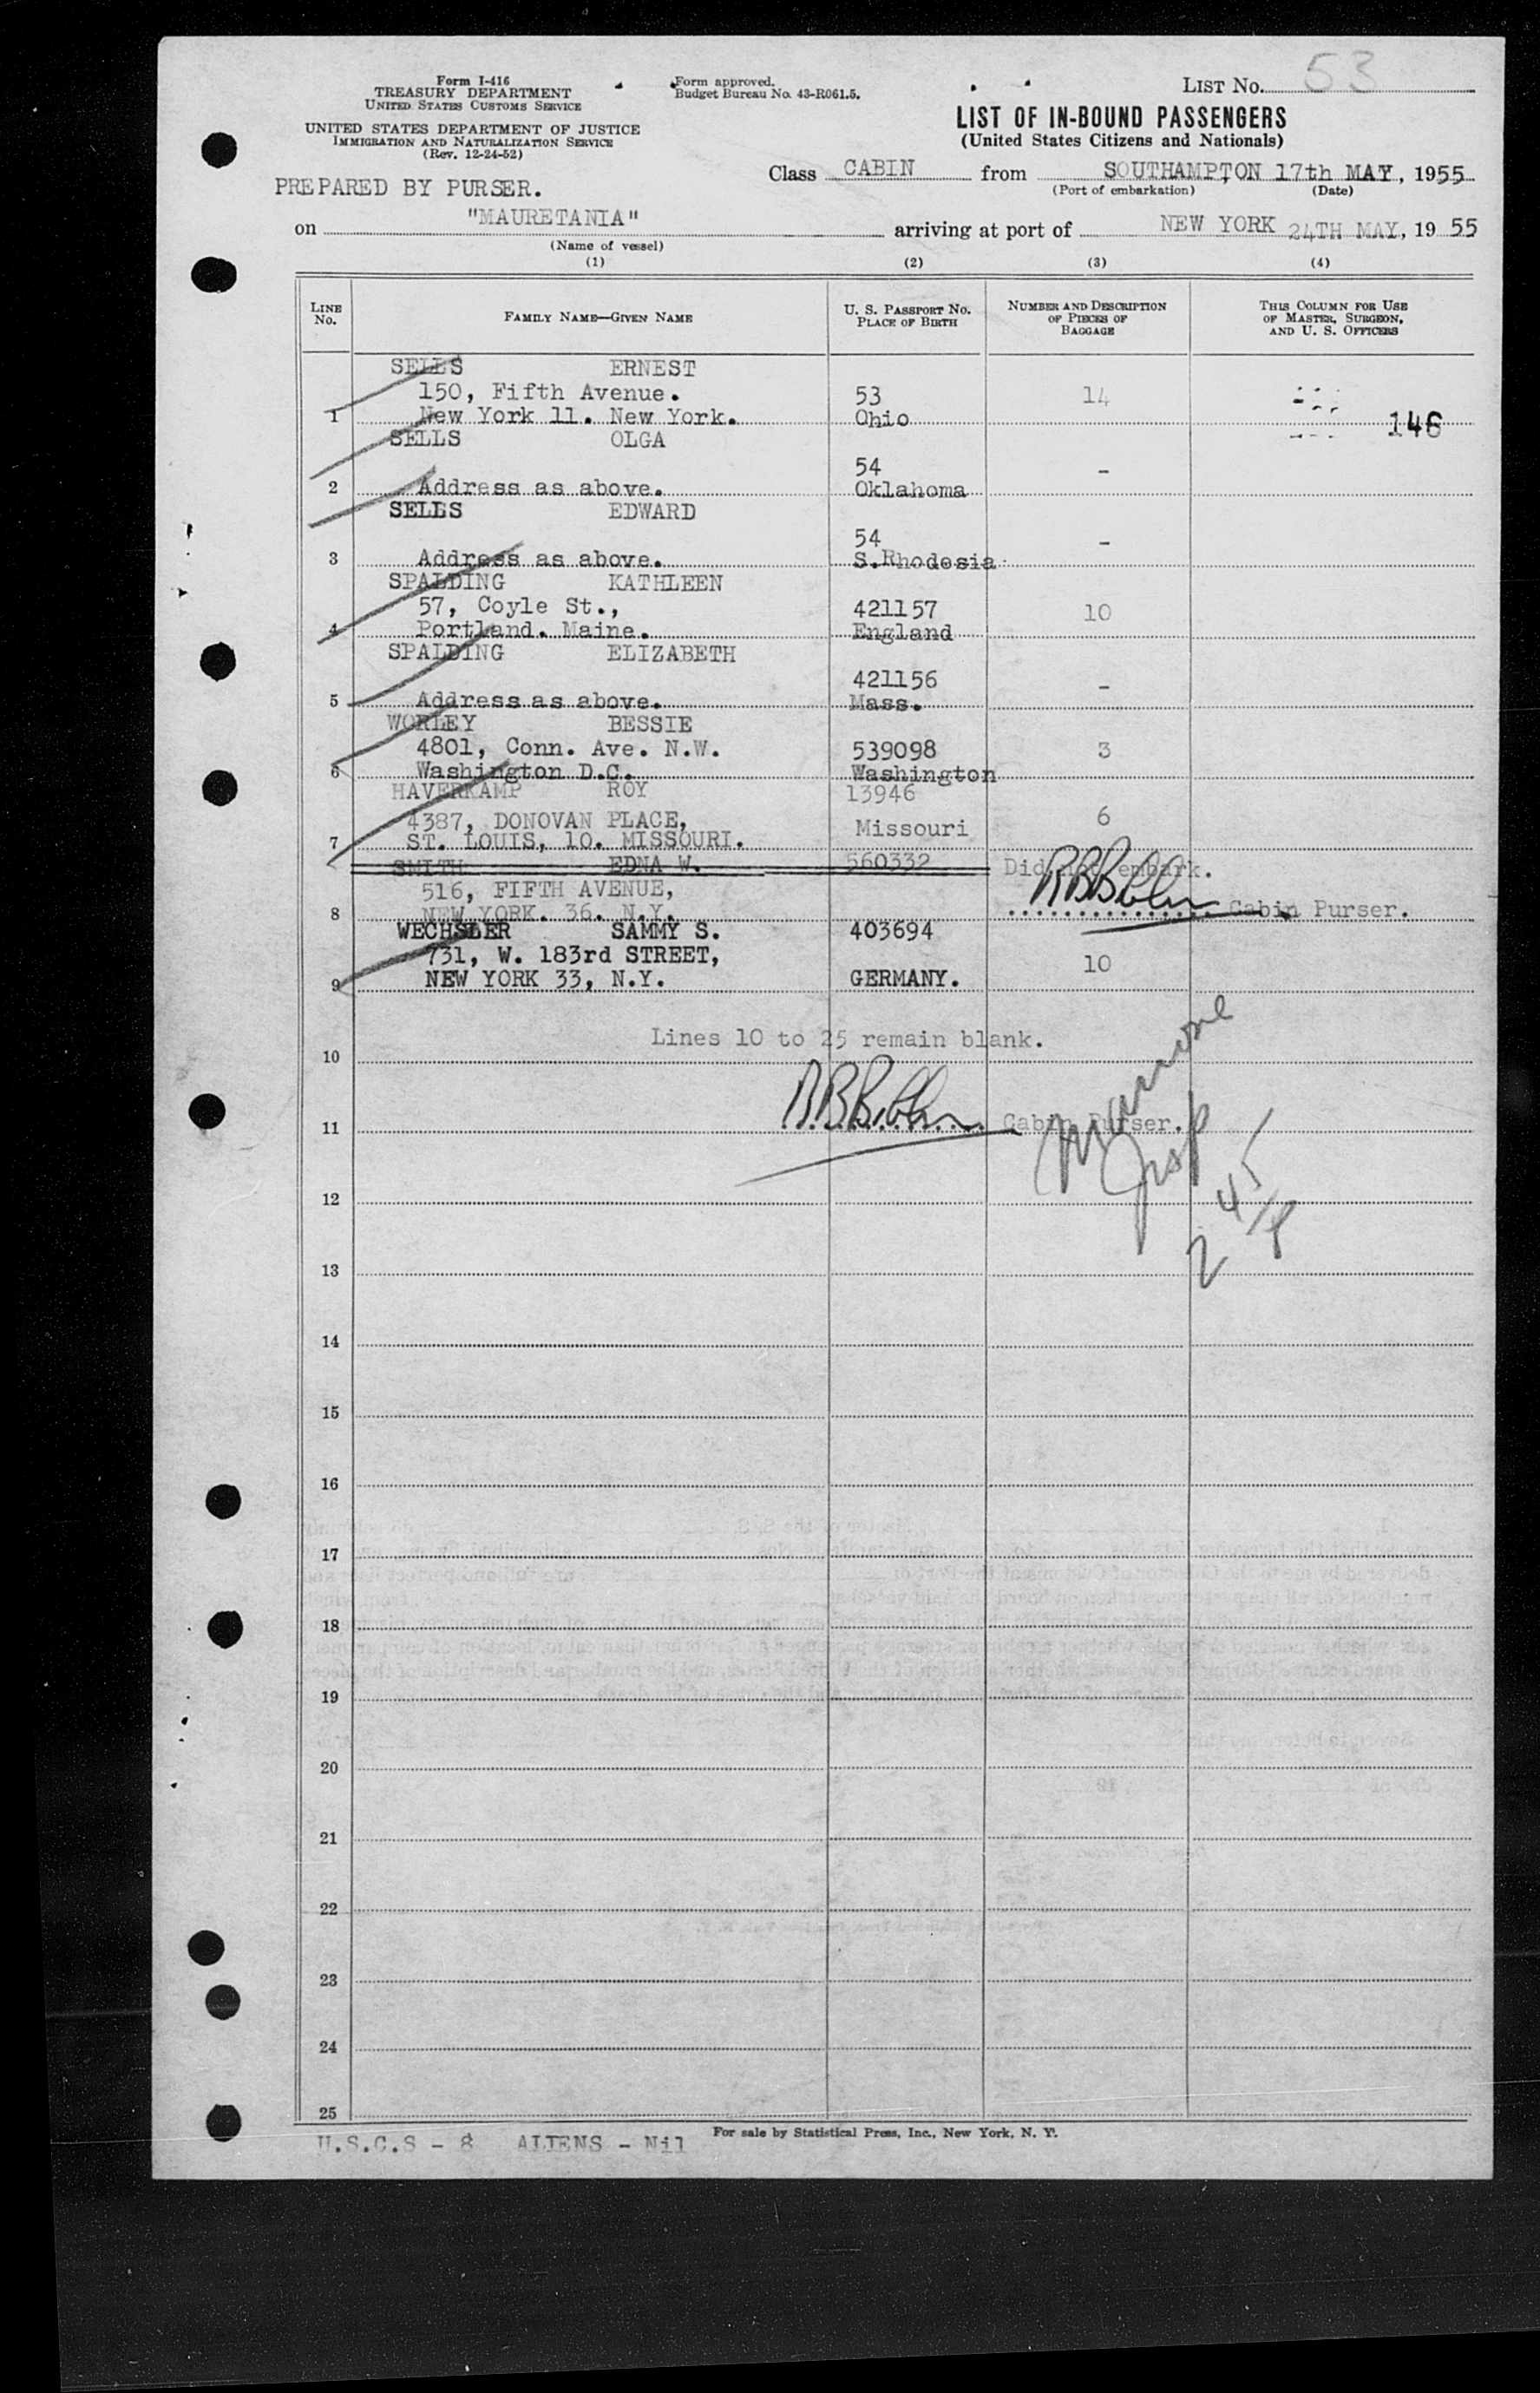 Form I-416
TREASURY DEPARTMENT
UNITED STATES CUSTOMS SERVICE
UNITED STATES DEPARTMENT OF JUSTICE
IMMIGRATION AND NATURALIZATION SERVICE
(Rev. 12-24-52)
Form approved.
Budget Bureau No. 43-R061.5.
LIST NO. 53
LIST OF IN-BOUND PASSENGERS
(United States Citizens and Nationals)
PREPARED BY PURSER.
Class CABIN from SOUTHAMPTON 17th MAY, 1955
(Port of embarkation) (Date)
on "MAURETANIA" arriving at port of NEW YORK 24TH MAY, 1955
(Name of vessel)
(1) (2) (3) (4)
LINE NO. FAMILY NAME—GIVEN NAME U. S. PASSPORT NO. PLACE OF BIRTH NUMBER AND DESCRIPTION OF PIECES OF BAGGAGE THIS COLUMN FOR USE OF MASTER, SURGEON, AND U. S. OFFICERS
SELLS ERNEST
150, Fifth Avenue. 53 14
1 New York 11. New York. Ohio 146
SELLS OLGA
54 -
2 Address as above. Oklahoma
SELLS EDWARD
54 -
3 Address as above. S.Rhodesia
SPALDING KATHLEEN
57, Coyle St., 421157 10
4 Portland. Maine. England
SPALDING ELIZABETH
421156 -
5 Address as above. Mass.
WORLEY BESSIE
4801, Conn. Ave. N.W. 539098 3
6 Washington D.C. Washington
HAVERKAMP ROY 13946
4387, DONOVAN PLACE, Missouri 6
7 ST. LOUIS, 10. MISSOURI.
SMITH EDNA W. 560332 Did not embark.
516, FIFTH AVENUE,
8 NEW YORK. 36. N.Y. Cabin Purser.
WECHSLER SAMMY S. 403694
731, W. 183rd STREET, 10
9 NEW YORK 33, N.Y. GERMANY.
Lines 10 to 25 remain blank.
10
11 Cabin Purser.
Insp
12
2 45/8
13
14
15
16
17
18
19
20
21
22
23
24
25
U.S.C.S - 8 ALIENS - Nil
For sale by Statistical Press, Inc., New York, N. Y.